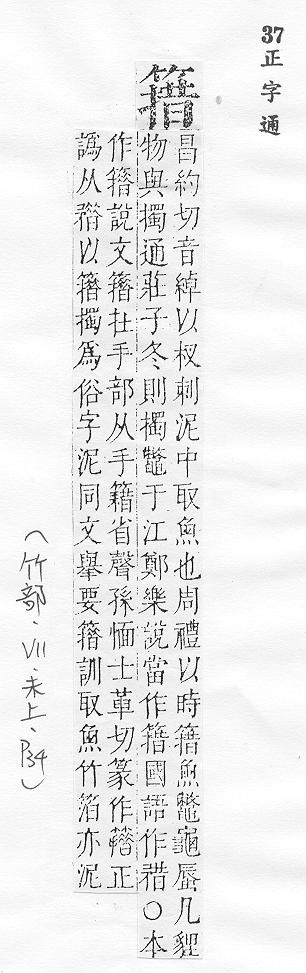 37正字通
簎
昌約切音綽以杈刺泥中取魚也周禮以時簎魚鼈龜蜃凡貍
物與擉通莊子冬則擉鼈于江鄭樂說當作簎國語作矠〇本
作簎說文簎在手部从手籍省聲孫愐士革切篆作簎正
譌从矠以簎擉爲俗字泥同文舉要簎訓取魚竹箔亦泥
(竹部、VII、未上、P34)